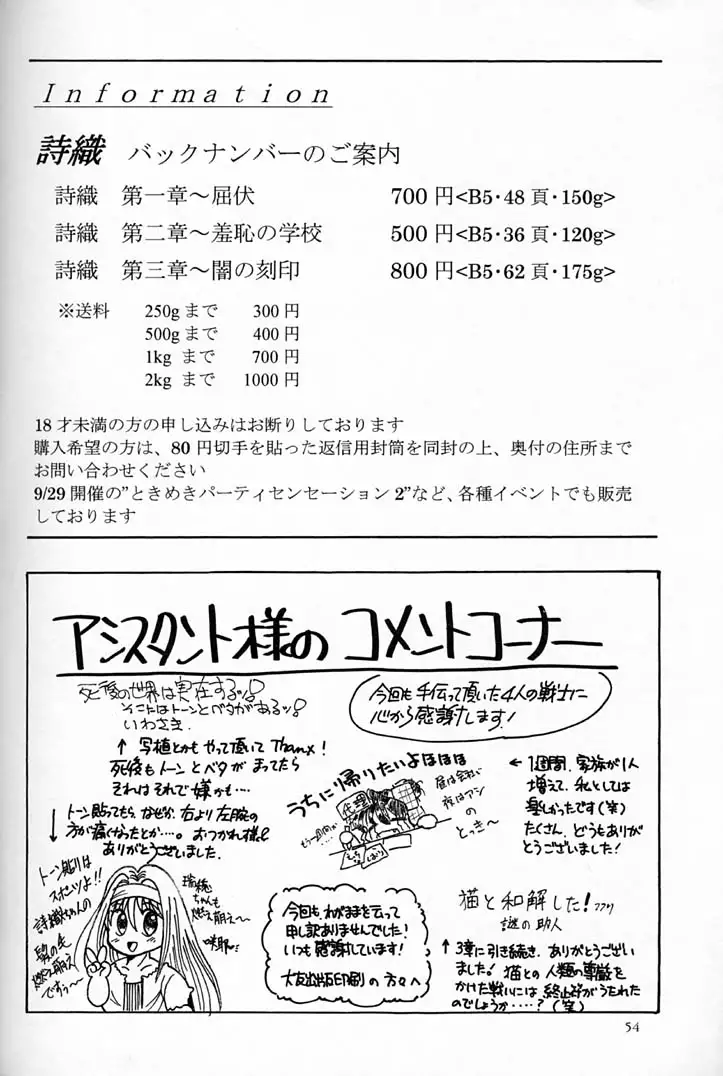 Information
詩織 バックナンバーのご案内
詩織 第一章～屈伏 700円<B5・48頁・150g>
詩織 第二章～羞恥の学校 500円<B5・36頁・120g>
詩織 第三章～闇の刻印 800円<B5・62頁・175g>
※送料 250gまで 300円
500gまで 400円
1kg まで 700円
2kg まで 1000円
18才未満の方の申し込みはお断りしております
購入希望の方は、80円切手を貼った返信用封筒を同封の上、奥付の住所まで
お問い合わせください
9/29開催の”ときめきパーティセンセーション2”など、各種イベントでも販売
しております
アシスタント様のコメントコーナー
死後の世界は実在するッ!
そこにはトーンとベタがあるッ!
いわさき
↑写植とかもやって頂いてThanx!
死後もトーンとベタがまってたら
それはそれで嫌かも…
今回も手伝って頂いた4人の戦士に
心から感謝します!
うちに帰りたいよほほほ
昼は会社で
夜はアシ
の
とっき～
←1週間、家族が1人
増えて、私としては
楽しかったです(笑)
たくさん、どうもありが
とうございました!
↓トーン貼ってもらったら、なぜか、右より左腕の
方が痛くなったとか…。おつかれ様!
ありがとうございました。
トーン貼りは
スポーツよ!!
詩織ちゃんの
髪の毛
燃え萌え
ですぅ～
瑞穂
ちゃんも
燃え萌え～
咲耶
今回も、わがままを云って
申し訳ありませんでした!
いつも感謝しています!
大友出版印刷の方々へ
猫と和解した!フフリ
謎の助人
↑3章に引き続き、ありがとうござい
ました!猫との人類の尊厳を
かけた戦いには終止符がうたれた
のでしょうか……?(笑)
54